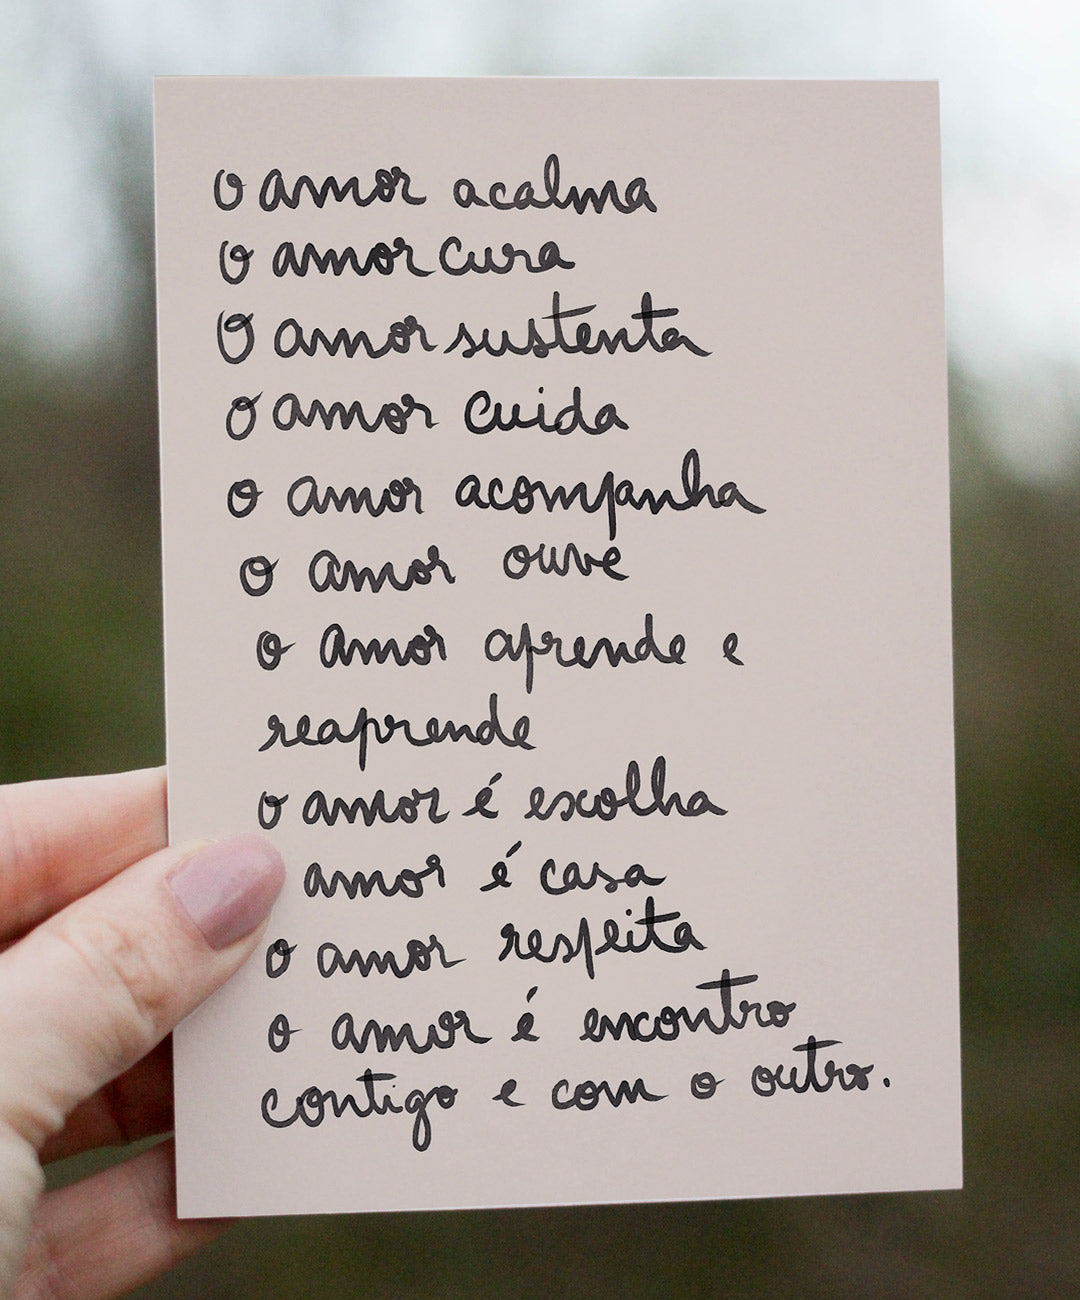 o amor acalma
o amor cura
O amor sustenta
o amor cuida
o amor acompanha
o amor ouve
o amor aprende e
reaprende
o amor é escolha
amor é casa
o amor respeita
o amor é encontro
contigo e com o outro.